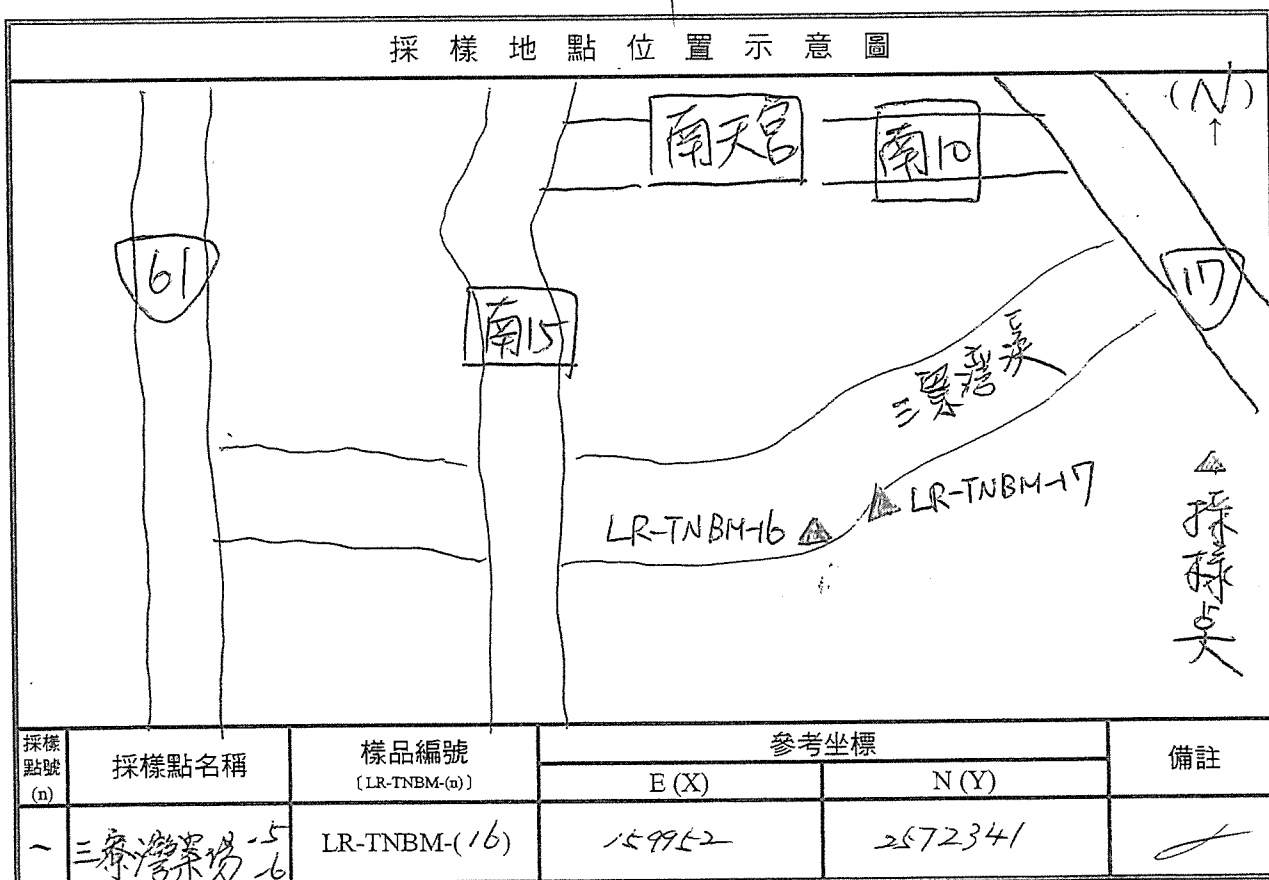 採樣地點位置示意圖
(N)
↑
南天宮
南10
61
17
南15
三寮灣溪
LR-TNBM-17
LR-TNBM-16
採樣点
採樣點號(n)
採樣點名稱
樣品編號
〔LR-TNBM-(n)〕
參考坐標
E (X)
N (Y)
備註
三寮灣案場-5
-6
LR-TNBM-(16)
159952
2572341